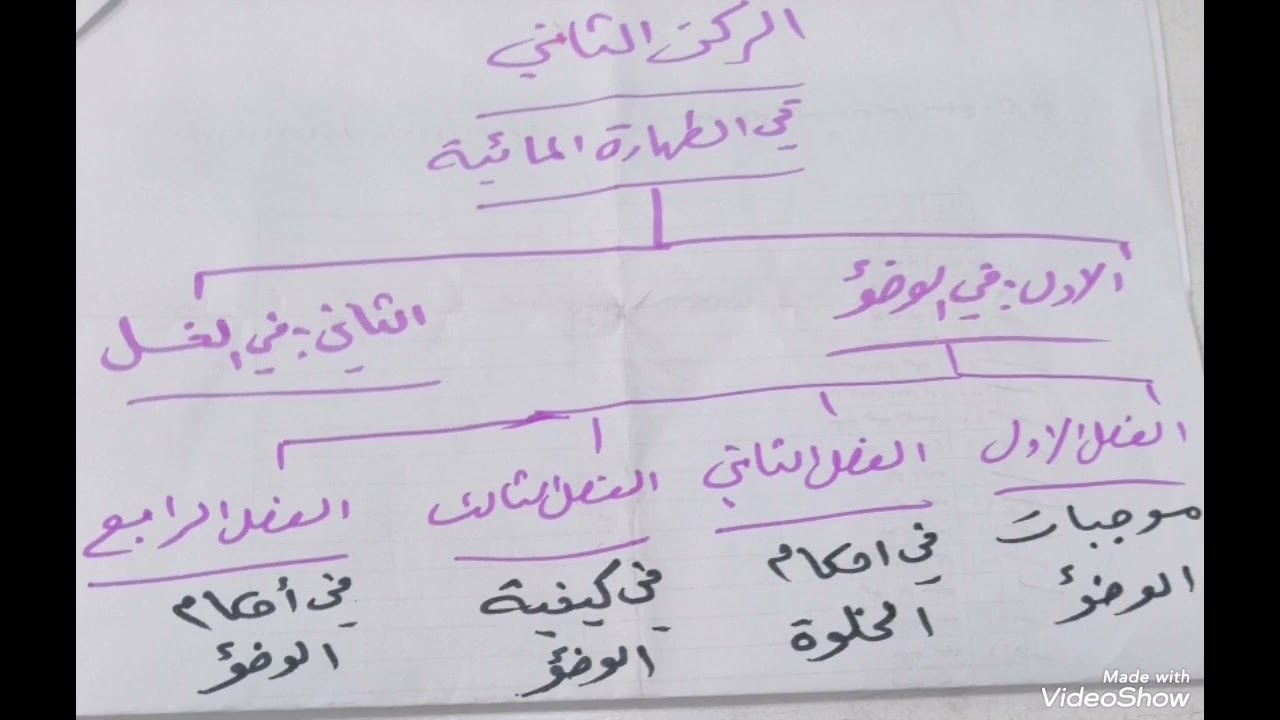 الركن الثاني
في الطهارة المائية
الاول: في الوضؤ
الثاني: في الغسل
الفصل الاول
موجبات
الوضؤ
الفصل الثاني
في احكام
الخلوة
الفصل الثالث
في كيفية
الوضؤ
الفصل الرابع
في أحكام
الوضؤ
Made with
VideoShow